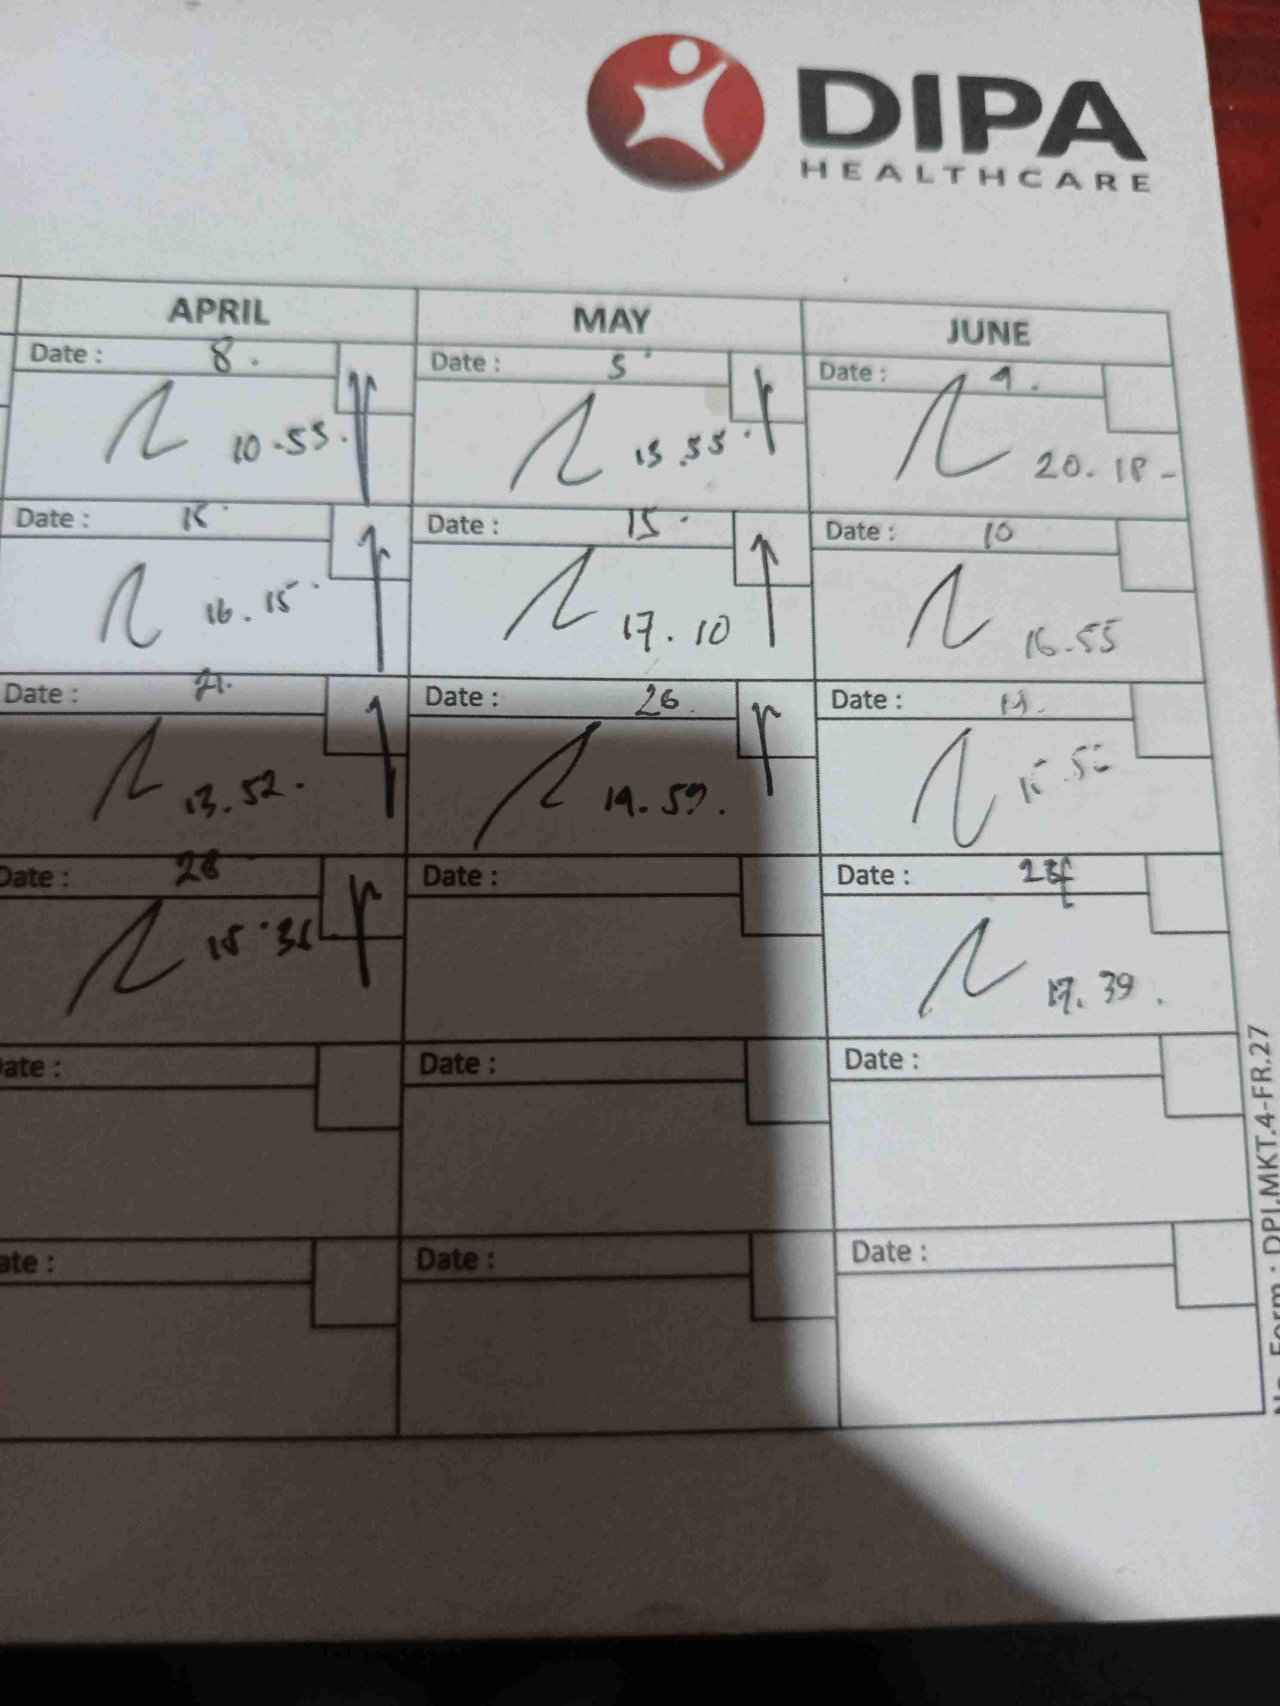 DIPA
HEALTHCARE
APRIL MAY JUNE
Date : 8. Date : 5 Date :
10.55. 15.55. 20.18-
Date : 15 Date : 15. Date : 10
16.15 17.10 16.55
Date : 21. Date : 26. Date :
13.52. 14.59.
Date : 28 Date : Date :
15.36 17.39.
ate : Date : Date :
ate : Date : Date :
Form : DPJ.MKT.4-FR.27